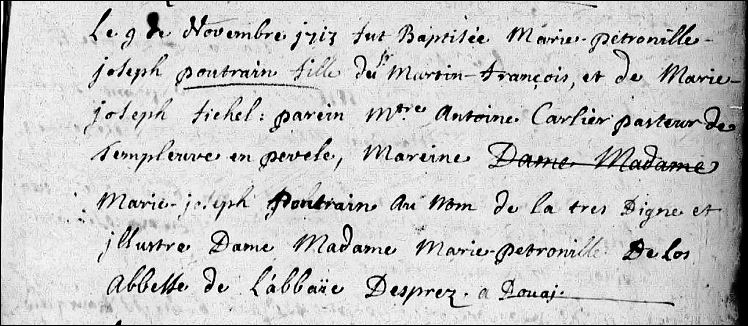 Le 9 de Novembre 1713 fut Baptisée Marie-petronille-
joseph poutrain fille du sr Martin-françois, et de Marie-
joseph fichel: parein Mtre Antoine Carlier pasteur de
Templeuve en pevele, Mareine Dame Madame
Marie-joseph Poutrain au nom de la tres Digne et
illustre Dame Madame Marie-petronille De Los
Abbesse de L'abbaïe Desprez. a Douaj.